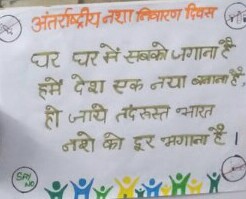 अंतर्राष्ट्रीय नशा निवारण दिवस
घर घर में सबको जगाना है
हमें देश एक नया बनाना है,
हो जाये तंदरुस्त भारत
नशे को दूर भगाना है।
SAY NO